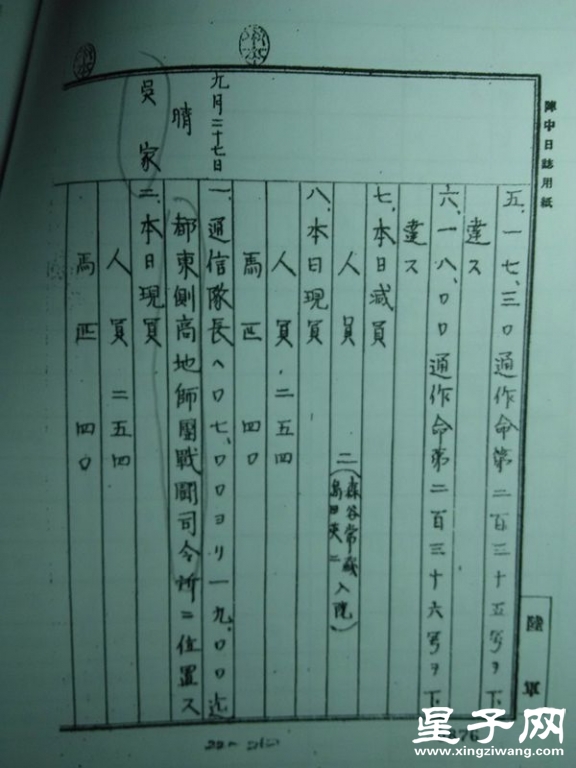 陣中日誌用紙
五、一七、三〇通作命第二百三十五号ヲ下
達ス
六、一八、〇〇通作命第二百三十六号ヲ下
達ス
七、本日減員
人員 二(森谷常蔵 入院)
八、本日現員
人員 二五四
馬匹 四〇
九月二十七日
晴
呉家
一、通信隊長ハ〇七、〇〇ヨリ一九、〇〇迄
都東側高地師団戦闘司令所ニ位置ス
二、本日現員
人員 二五四
馬匹 四〇
陸軍
876
星子网
www.xingziwang.com